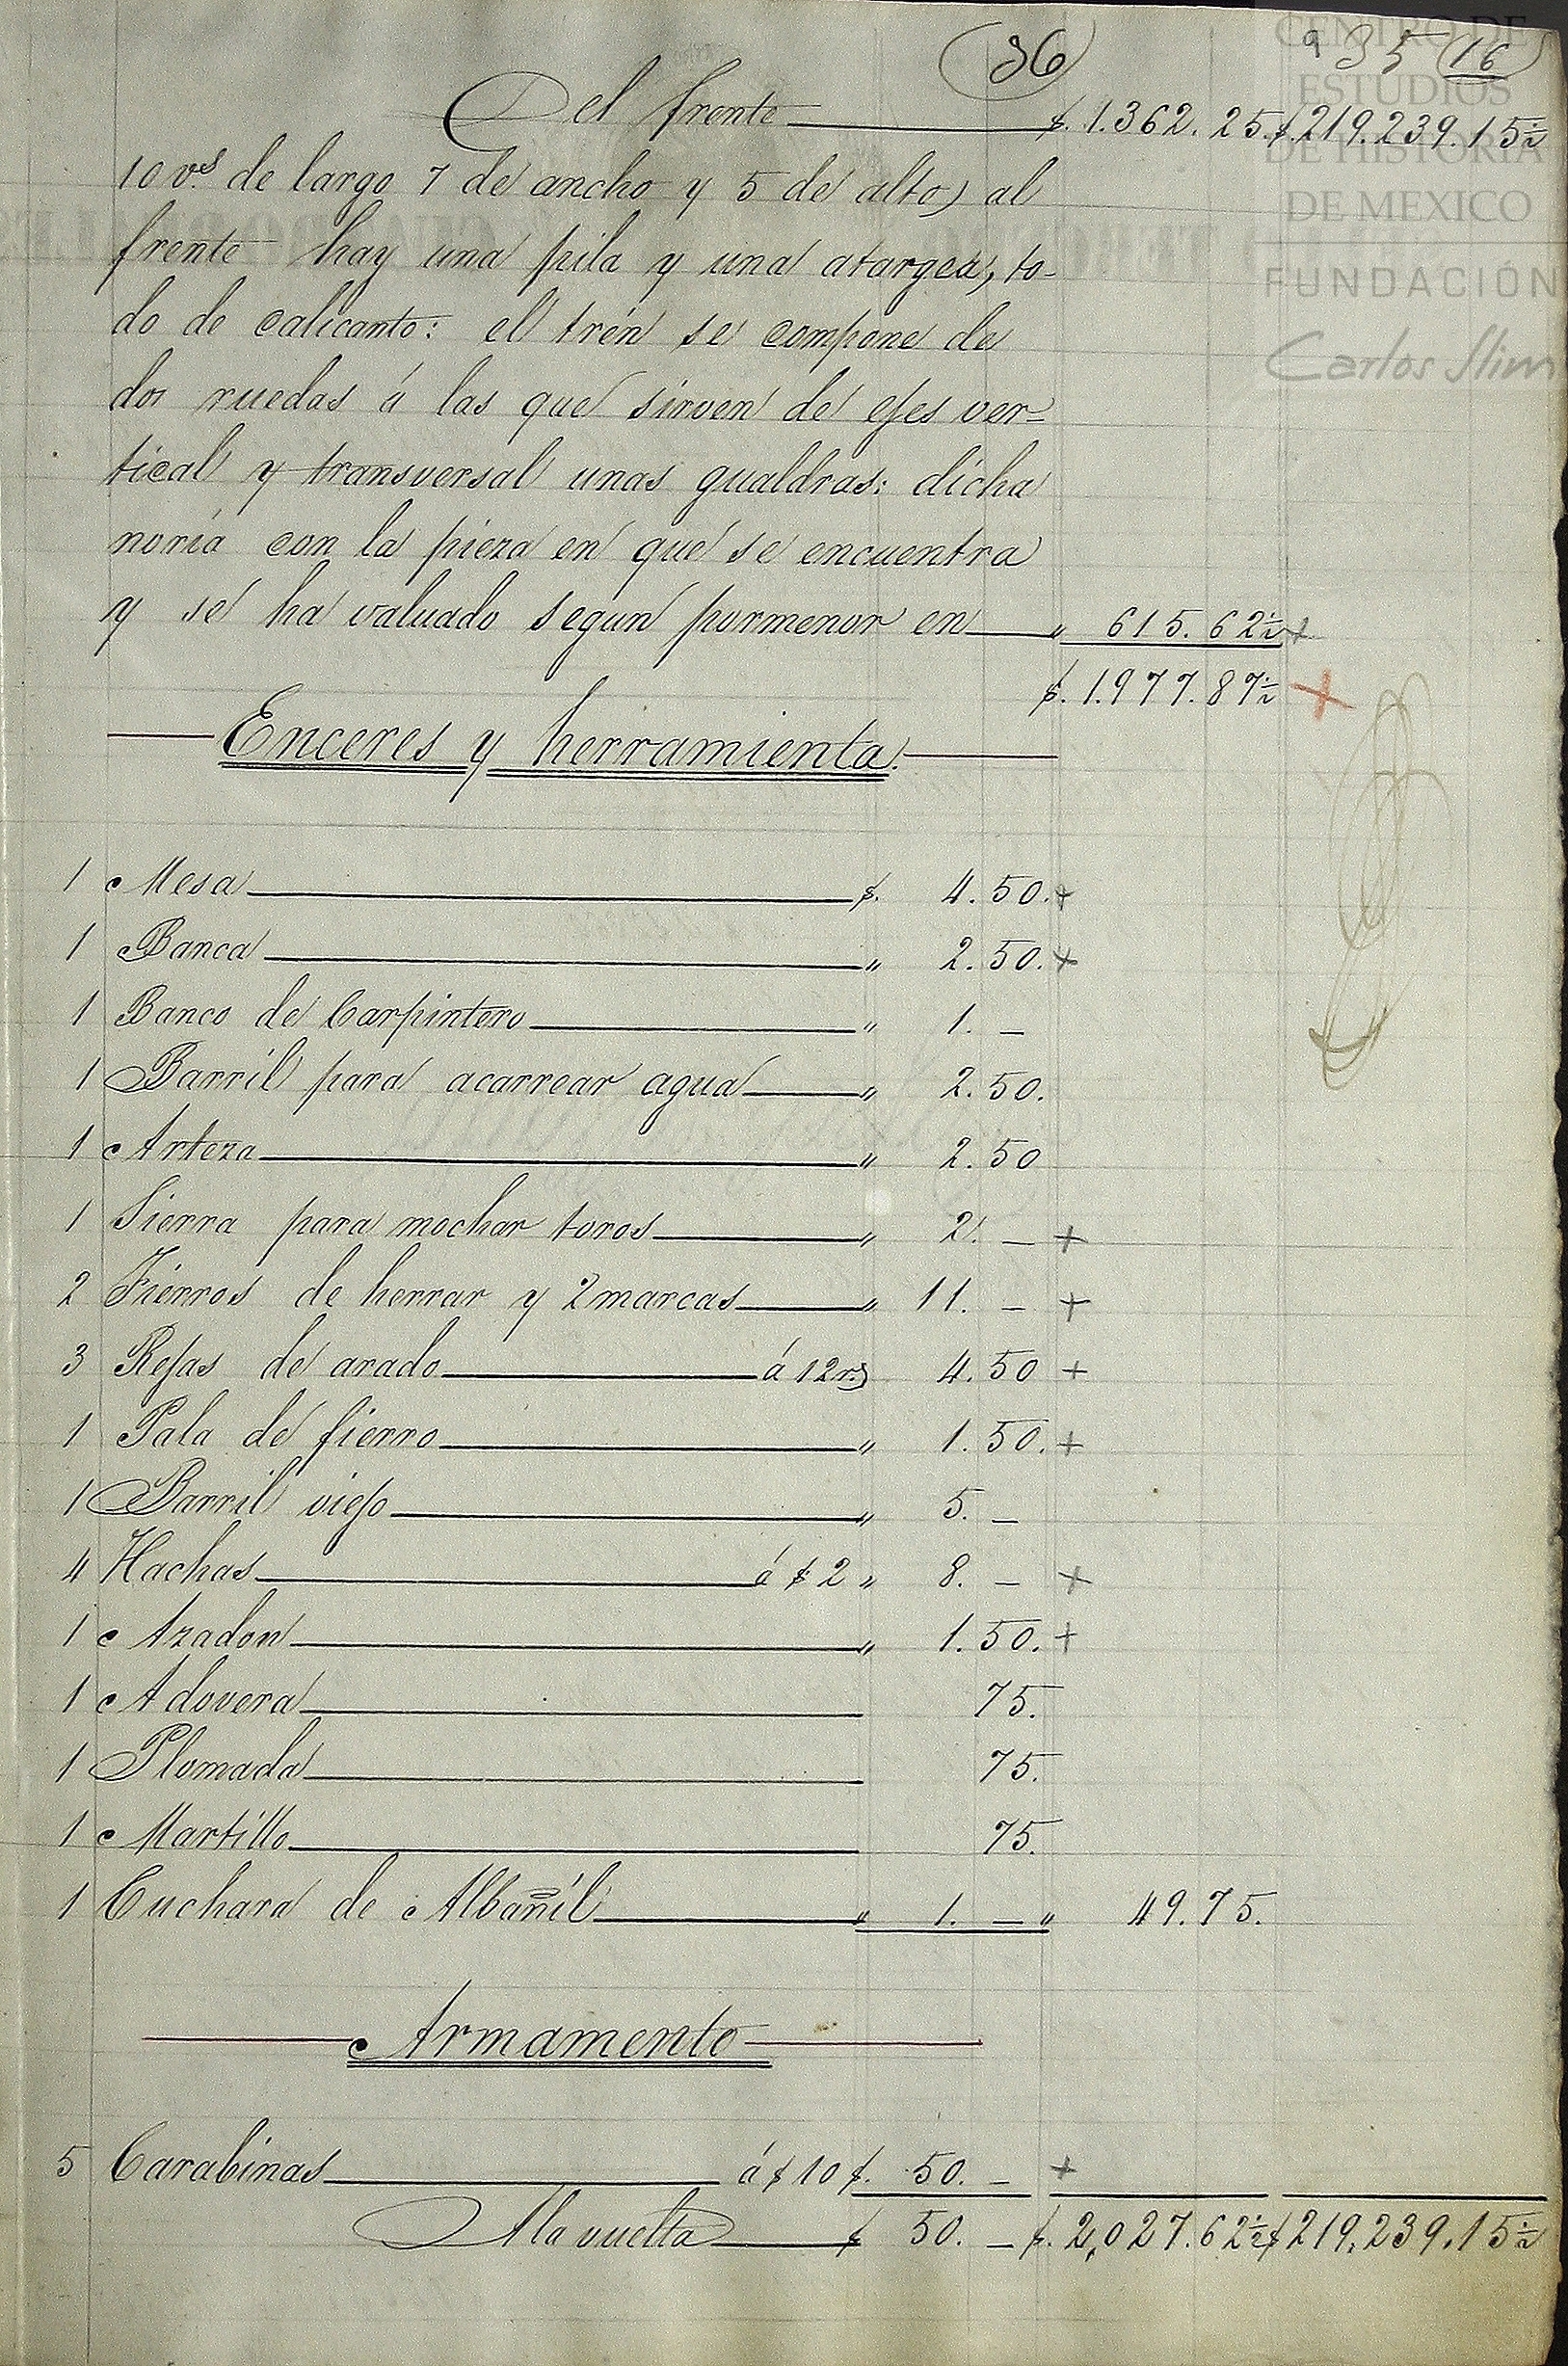 36
935 16
Del frente $. 1.362.25. $. 219.239.15½
10 v.s de largo 7 de ancho y 5 de alto, al
frente hay una pila y una atargea, to-
do de calicanto: el trén se compone de
dos ruedas á las que sirven de ejes ver=
tical y transversal unas gualdras: dicha
noria con la pieza en que se encuentra
y se ha valuado segun pormenor en " 615.62½ +
$. 1.977.87½ +
Enceres y herramienta.
1 Mesa $. 4.50. +
1 Banca " 2.50. +
1 Banco de Carpintero " 1. —
1 Barril para acarrear agua " 2.50.
1 Arteza " 2.50
1 Sierra para mochar toros " 2. — +
2 Fierros de herrar y 2 marcas " 11. — +
3 Rejas de arado á 12 rs 4.50 +
1 Pala de fierro " 1.50. +
1 Barril viejo " 5. —
4 Hachas á $ 2 " 8. — +
1 Azadon " 1.50. +
1 Adovera 75.
1 Plomada 75.
1 Martillo 75.
1 Cuchara de Albañil " 1. — " 49.75.
Armamento
5 Carabinas á $ 10 $. 50. — +
A la vuelta $ 50. — $. 2,027.62½ $ 219.239.15½
CENTRO DE
ESTUDIOS
DE HISTORIA
DE MEXICO
FUNDACIÓN
Carlos Slim